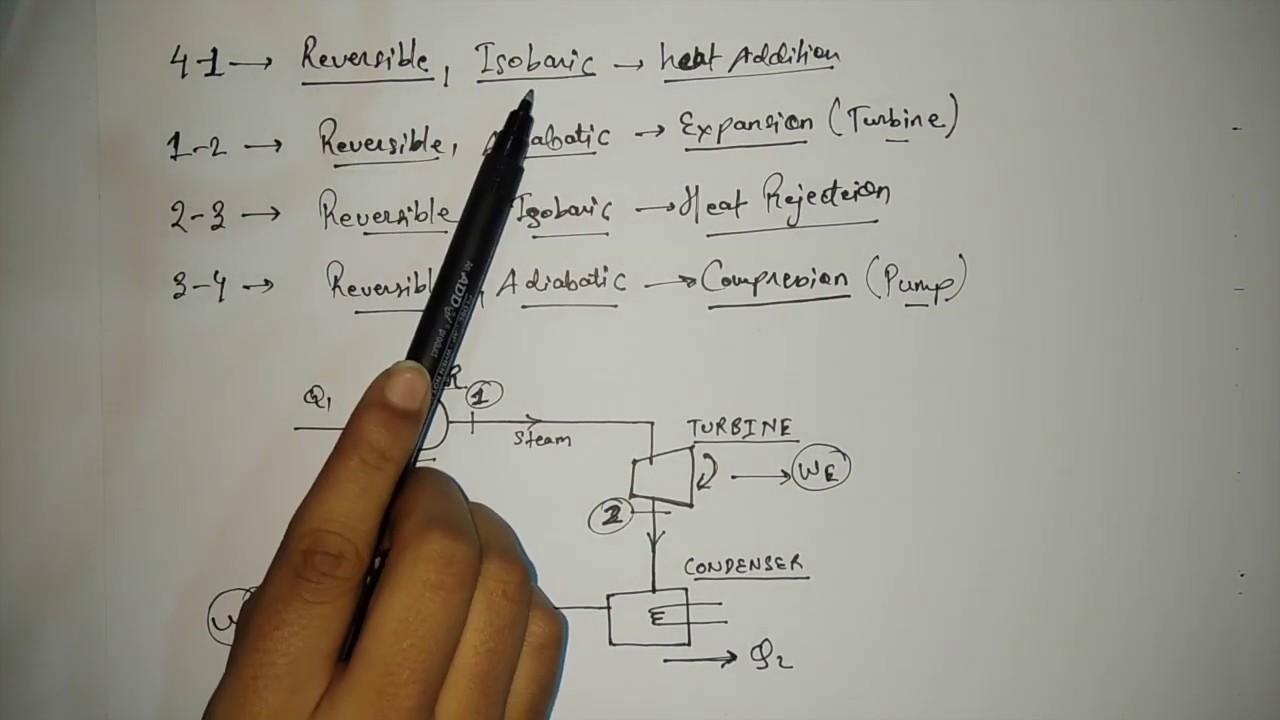 4-1 → Reversible, Isobaric → heat Addition
1-2 → Reversible, → Expansion (Turbine)
2-3 → Reversible Isobaric → Heat Rejecteion
3-4 → , Adiabatic → Compresion (Pump)
Q₁ ①
Steam
TURBINE
W_E
②
CONDENSER
Q₂